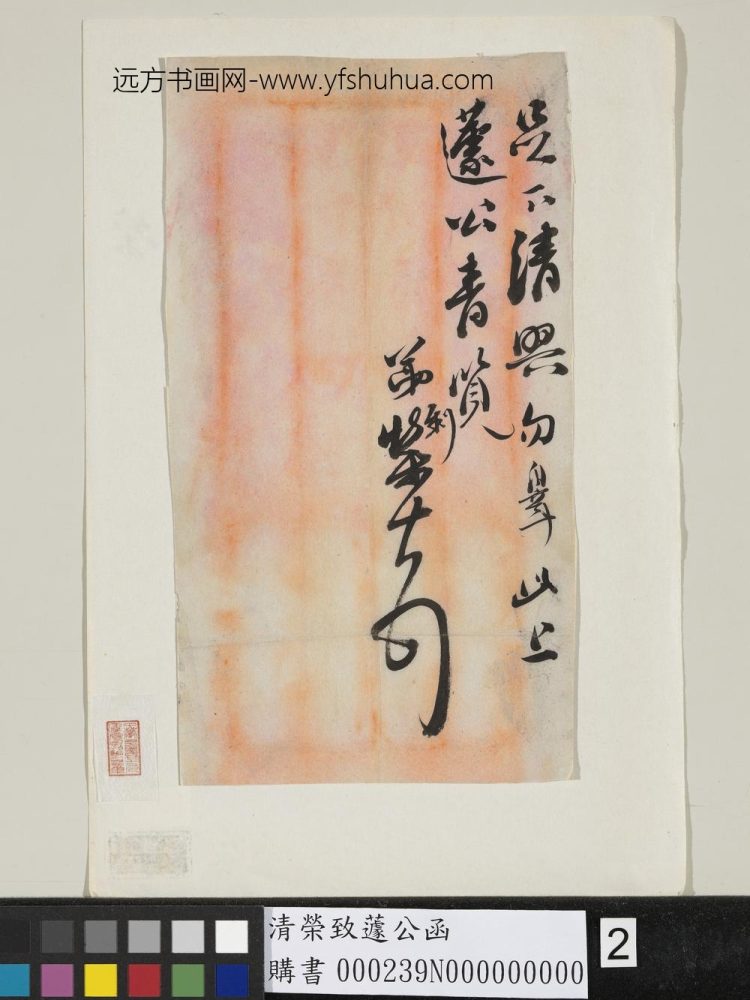 远方书画网-www.yfshuhua.com
足下清興勿辜此上
蘧公青覽
弟榮頓首
清榮致蘧公函
購書 000239N000000000
2